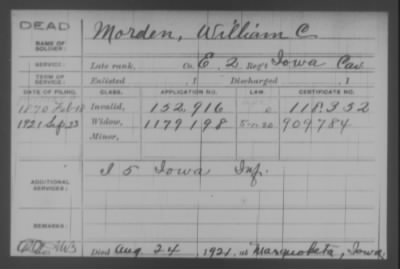 DEAD
NAME OF SOLDIER: Morden, William C
SERVICE: Late rank, Co. E, 2 Reg't Iowa Cav
TERM OF SERVICE: Enlisted , 1 Discharged , 1
DATE OF FILING. CLASS. APPLICATION NO. LAW. CERTIFICATE NO.
1870 Feb 18 Invalid, 152,916 118352
1921 Sep, 23 Widow, 1179198 909784
Minor,
ADDITIONAL SERVICES: I 5 Iowa Inf.
REMARKS:
Died Aug. 24, 1921, at Maquoketa, Iowa.